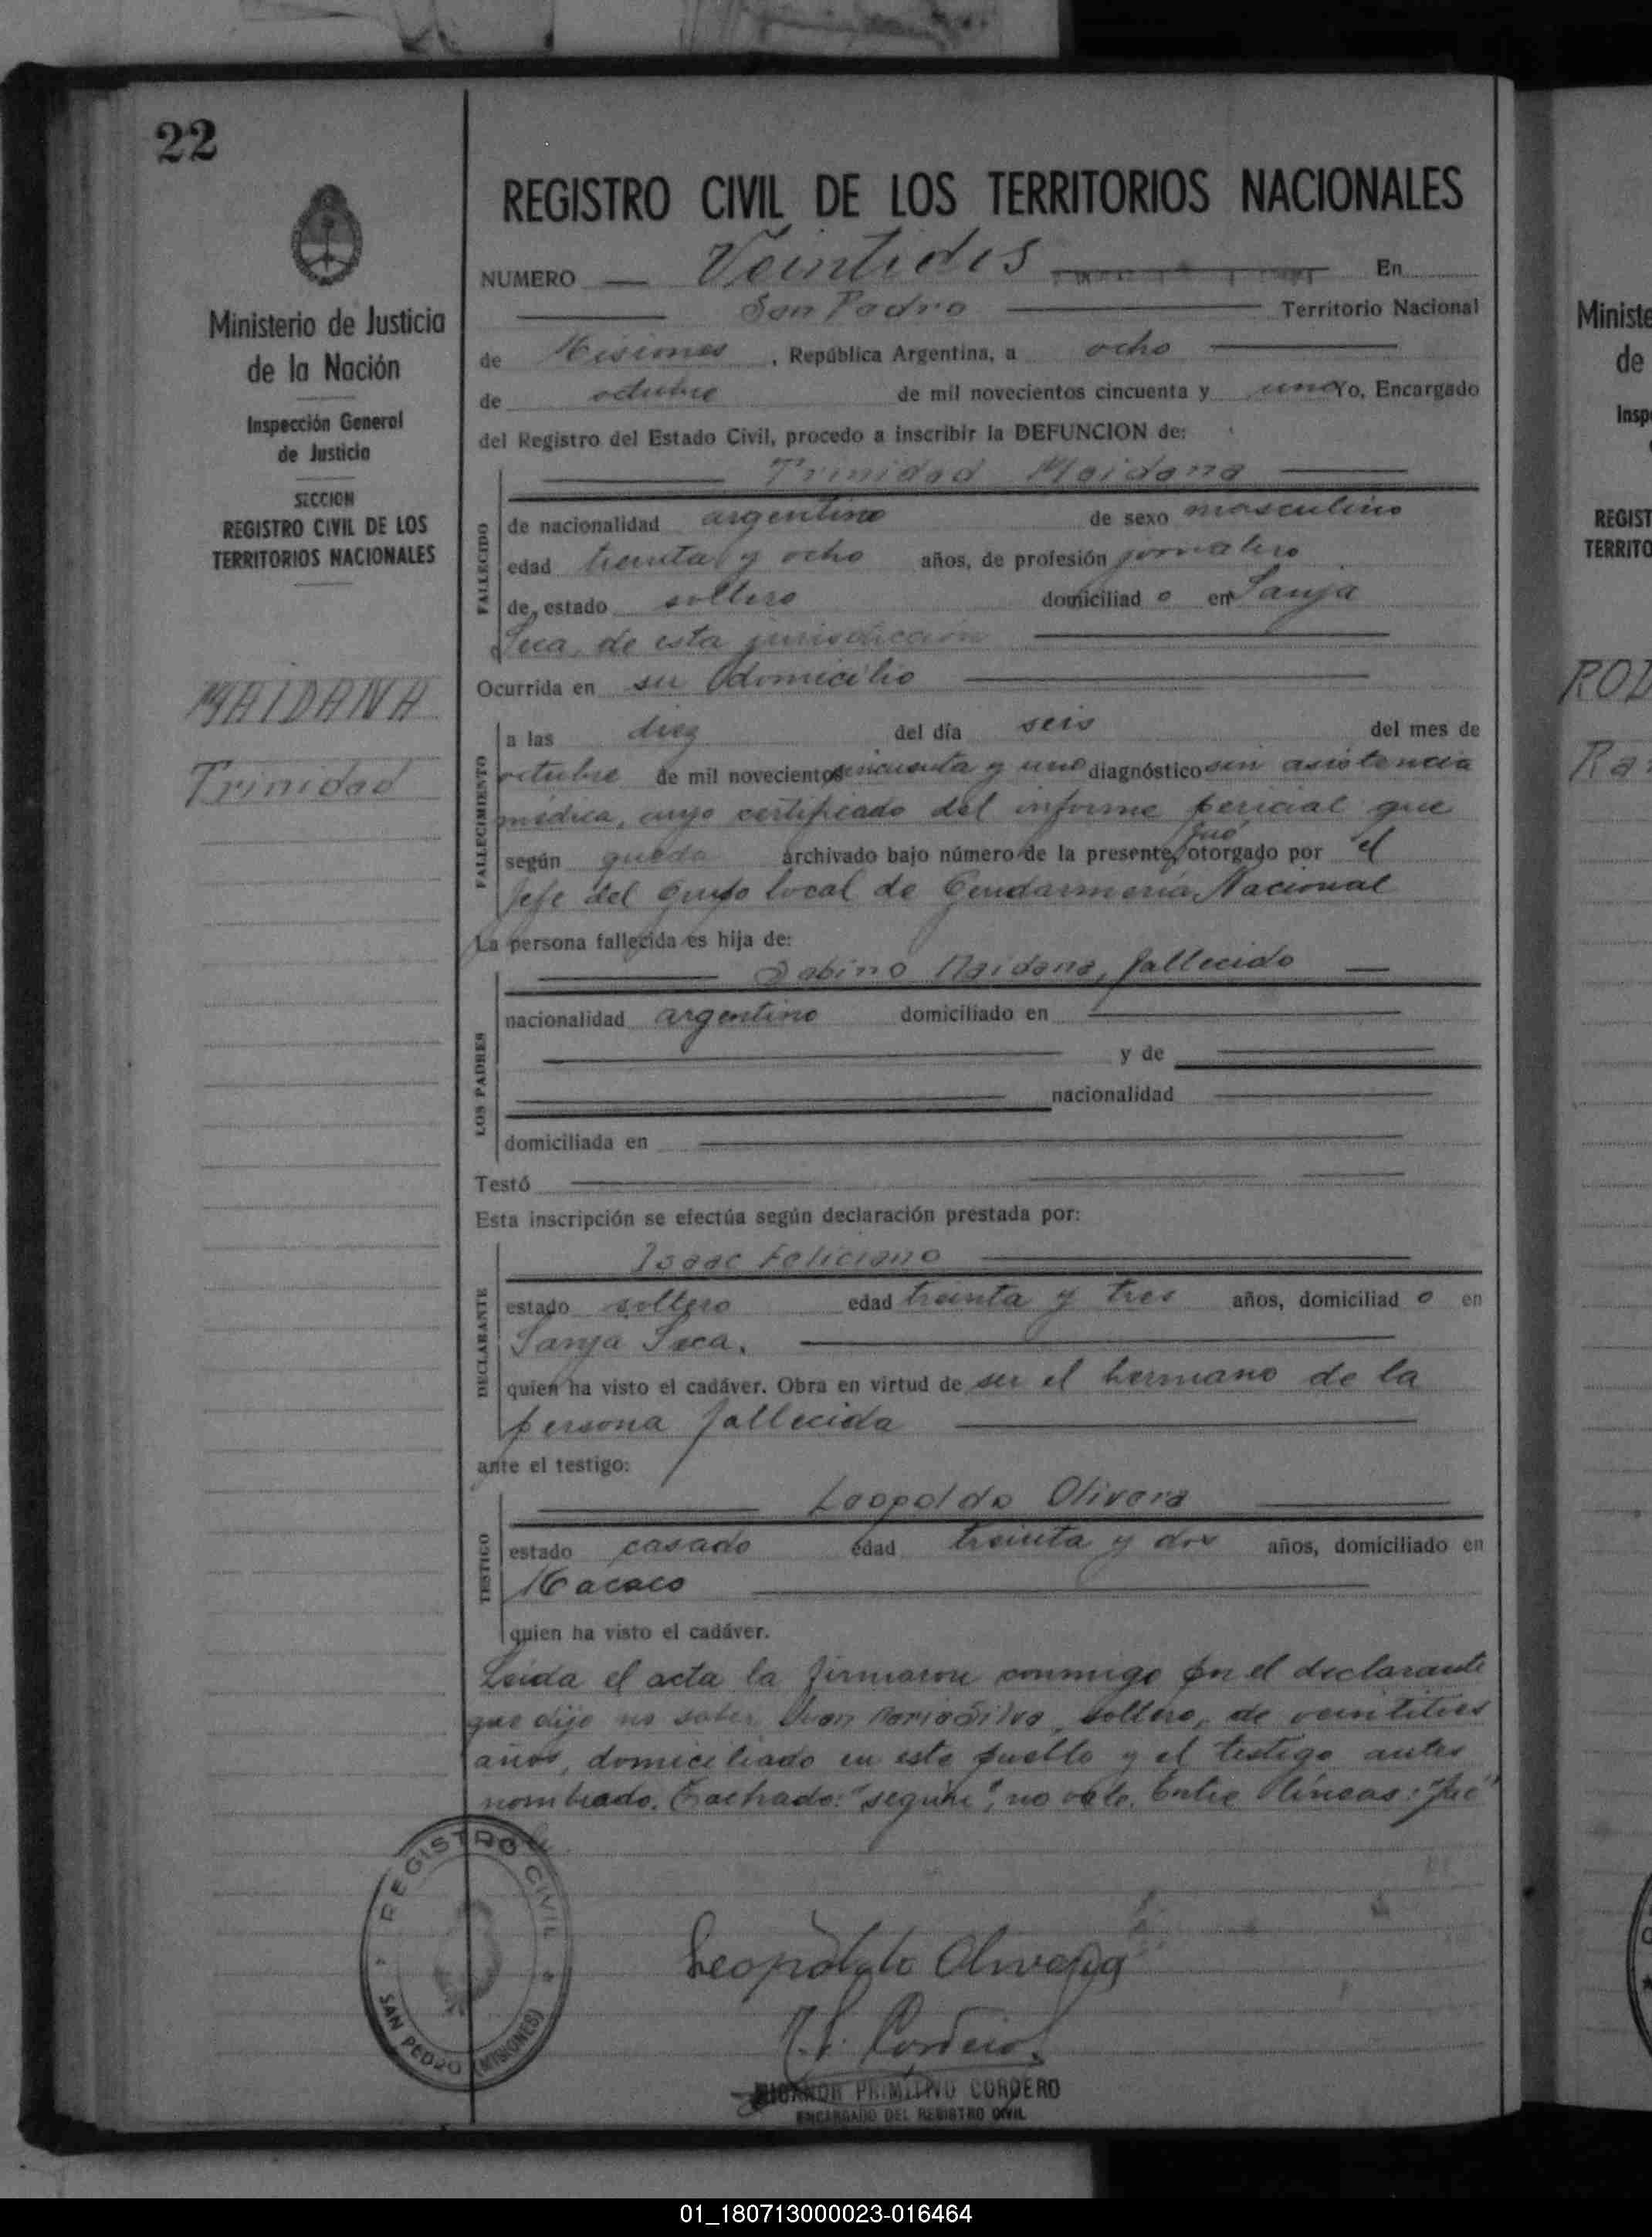 22
Ministerio de Justicia
de la Nación
Inspección General
de Justicia
SECCION
REGISTRO CIVIL DE LOS
TERRITORIOS NACIONALES
MAIDANA
Trinidad
REGISTRO CIVIL DE LOS TERRITORIOS NACIONALES
NUMERO Veintidos En
San Pedro Territorio Nacional
de Misiones, República Argentina, a ocho
de octubre de mil novecientos cincuenta y uno Yo, Encargado
del Registro del Estado Civil, procedo a inscribir la DEFUNCION de:
Trinidad Maidana
FALLECIDO
de nacionalidad argentino de sexo masculino
edad treinta y ocho años, de profesión jornalero
de estado soltero domiciliad o en Sanja
Seca, de esta jurisdicción
Ocurrida en su domicilio
FALLECIMIENTO
a las diez del día seis del mes de
octubre de mil novecientos cincuenta y uno diagnóstico sin asistencia
médica, cuyo certificado del informe pericial que
según queda archivado bajo número de la presente, fué otorgado por el
Jefe del Grupo local de Gendarmería Nacional
La persona fallecida es hija de:
LOS PADRES
Sabino Maidana, fallecido
nacionalidad argentino domiciliado en
y de
nacionalidad
domiciliada en
Testó
Esta inscripción se efectúa según declaración prestada por:
DECLARANTE
Isaac Feliciano
estado soltero edad treinta y tres años, domiciliad o en
Sanja Seca.
quien ha visto el cadáver. Obra en virtud de ser el hermano de la
persona fallecida
ante el testigo:
TESTIGO
Leopoldo Olivera
estado casado edad treinta y dos años, domiciliado en
Macaco
quien ha visto el cadáver.
Leida el acta la firmaron conmigo por el declarante
que dijo no saber Juan María Silva, soltero, de veintitres
años, domiciliado en este pueblo y el testigo antes
nombrado. Tachado: "según", no vale. Entre líneas: "fué"
REGISTRO CIVIL
SAN PEDRO (MISIONES)
Leopoldo Olivera
N. P. Cordero
NICANOR PRIMITIVO CORDERO
ENCARGADO DEL REGISTRO CIVIL
Ministe
de
Insp
REGIST
TERRITO
01_180713000023-016464